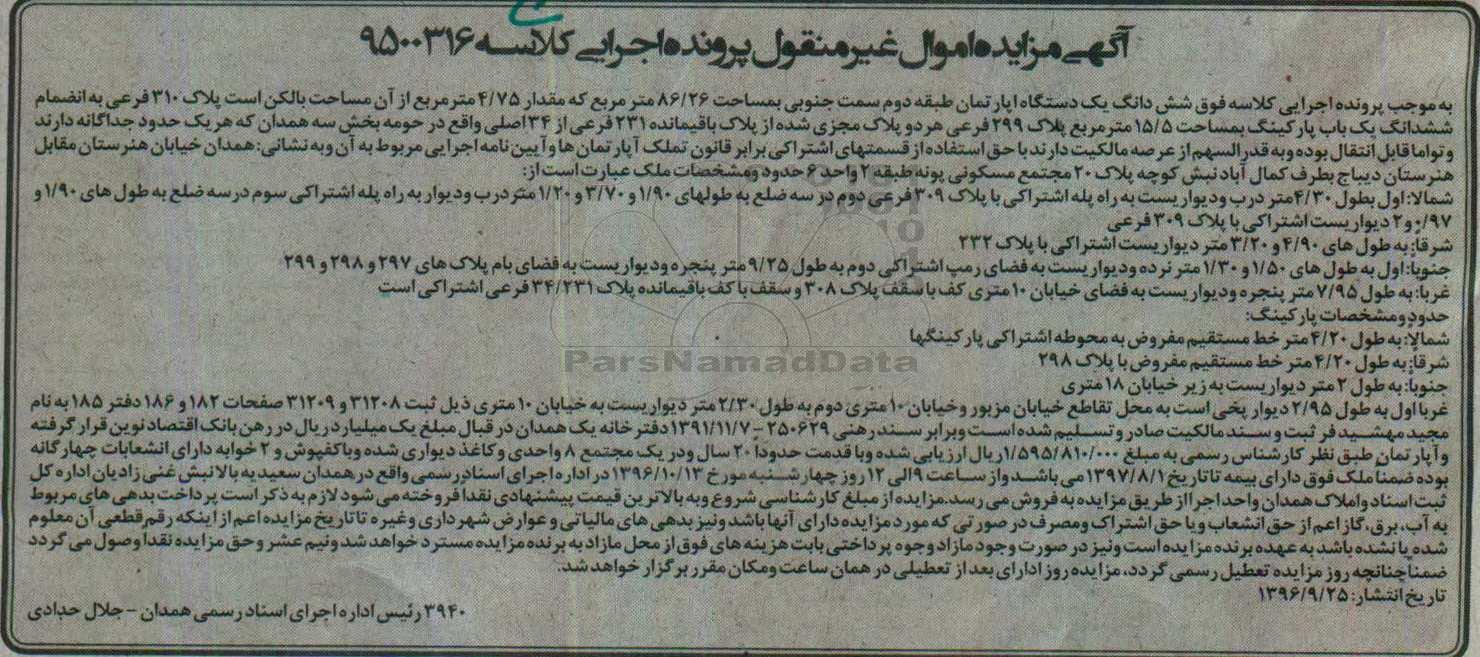 آگهی مزایده اموال غیر منقول پرونده اجرایی کلاسه ۹۵۰۰۳۱۶
به موجب پرونده اجرایی کلاسه فوق شش دانگ یک دستگاه اپارتمان طبقه دوم سمت جنوبی بمساحت ۸۶/۲۶ متر مربع که مقدار ۴/۷۵ مترمربع از آن مساحت بالکن است پلاک ۳۱۰ فرعی به انضمام
ششدانگ یک باب پارکینگ بمساحت ۱۵/۵ مترمربع پلاک ۲۹۹ فرعی هر دو پلاک مجزی شده از پلاک باقیمانده ۲۳۱ فرعی از ۳۴ اصلی واقع در حومه بخش سه همدان که هر یک حدود جداگانه دارند
و تواما قابل انتقال بوده و به قدر السهم از عرصه مالکیت دارند با حق استفاده از قسمتهای اشتراکی برابر قانون تملک آپارتمان ها و آیین نامه اجرایی مربوط به آن و به نشانی: همدان خیابان هنرستان مقابل
هنرستان دیباج بطرف کمال آباد نبش کوچه پلاک ۲۰ مجتمع مسکونی پونه طبقه ۲ واحد ۶ حدود ومشخصات ملک عبارت است از:
شمالا: اول بطول ۴/۳۰ متر درب ودیواریست به راه پله اشتراکی با پلاک ۳۰۹ فرعی دوم در سه ضلع به طولهای ۱/۹۰ و ۳/۷۰ و ۱/۲۰ متر درب ودیوار به راه پله اشتراکی سوم در سه ضلع به طول های ۱/۹۰ و
۰/۹۷ و ۲ دیواریست اشتراکی با پلاک ۳۰۹ فرعی
شرقا: به طول های ۴/۹۰ و ۳/۲۰ متر دیواریست اشتراکی با پلاک ۲۳۲
جنوبا: اول به طول های ۱/۵۰ و ۱/۳۰ متر نرده ودیواریست به فضای رمپ اشتراکی دوم به طول ۹/۲۵ متر پنجره ودیواریست به فضای بام پلاک های ۲۹۷ و ۲۹۸ و ۲۹۹
غربا: به طول ۷/۹۵ متر پنجره ودیواریست به فضای خیابان ۱۰ متری کف با سقف پلاک ۳۰۸ و سقف با کف باقیمانده پلاک ۳۴/۲۳۱ فرعی اشتراکی است
حدود ومشخصات پارکینگ:
شمالا: به طول ۴/۲۰ متر خط مستقیم مفروض به محوطه اشتراکی پارکینگها
شرقا: به طول ۴/۲۰ متر خط مستقیم مفروض با پلاک ۲۹۸
جنوبا: به طول ۲ متر دیواریست به زیر خیابان ۱۸ متری
غربا اول به طول ۲/۹۵ دیوار پخی است به محل تقاطع خیابان مزبور وخیابان ۱۰ متری دوم به طول ۲/۳۰ متر دیواریست به خیابان ۱۰ متری ذیل ثبت ۳۱۲۰۸ و ۳۱۲۰۹ صفحات ۱۸۲ و ۱۸۶ دفتر ۱۸۵ به نام
مجید مهشید فر ثبت و سند مالکیت صادر و تسلیم شده است وبرابر سند رهنی ۲۵۰۶۲۹ - ۱۳۹۱/۱۱/۷ دفترخانه یک همدان در قبال مبلغ یک میلیارد ریال در رهن بانک اقتصاد نوین قرار گرفته
و آپارتمان طبق نظر کارشناس رسمی به مبلغ ۱/۵۹۵/۸۱۰/۰۰۰ ریال ارزیابی شده وبا قدمت حدودا ۲۰ سال ودر یک مجتمع ۸ واحدی و کاغذ دیواری شده وبا کفپوش و ۲ خوابه دارای انشعابات چهارگانه
بوده ضمنا ملک فوق دارای بیمه تا تاریخ ۱۳۹۷/۸/۱ می باشد واز ساعت ۹ الی ۱۲ روز چهارشنبه مورخ ۱۳۹۶/۱۰/۱۳ در اداره اجرای اسناد رسمی واقع در همدان سعیدیه بالا نبش غنی زادیان اداره کل
ثبت اسناد واملاک همدان واحد اجرا از طریق مزایده به فروش می رسد.مزایده از مبلغ کارشناسی شروع وبه بالاترین قیمت پیشنهادی نقدا فروخته می شود لازم به ذکر است پرداخت بدهی های مربوط
به آب، برق، گاز اعم از حق انشعاب ویا حق اشتراک ومصرف در صورتی که مورد مزایده دارای آنها باشد ونیز بدهی های مالیاتی و عوارض شهرداری وغیره تا تاریخ مزایده اعم از اینکه رقم قطعی آن معلوم
شده یا نشده باشد به عهده برنده مزایده است ونیز در صورت وجود مازاد وجوه پرداختی بابت هزینه های فوق از محل مازاد به برنده مزایده مسترد خواهد شد ونیم عشر وحق مزایده نقدا وصول می گردد
ضمنا چنانچه روز مزایده تعطیل رسمی گردد، مزایده روز اداری بعد از تعطیلی در همان ساعت ومکان مقرر برگزار خواهد شد.
تاریخ انتشار: ۱۳۹۶/۹/۲۵
۳۹۴۰ رئیس اداره اجرای اسناد رسمی همدان - جلال حدادی
ParsNamadData